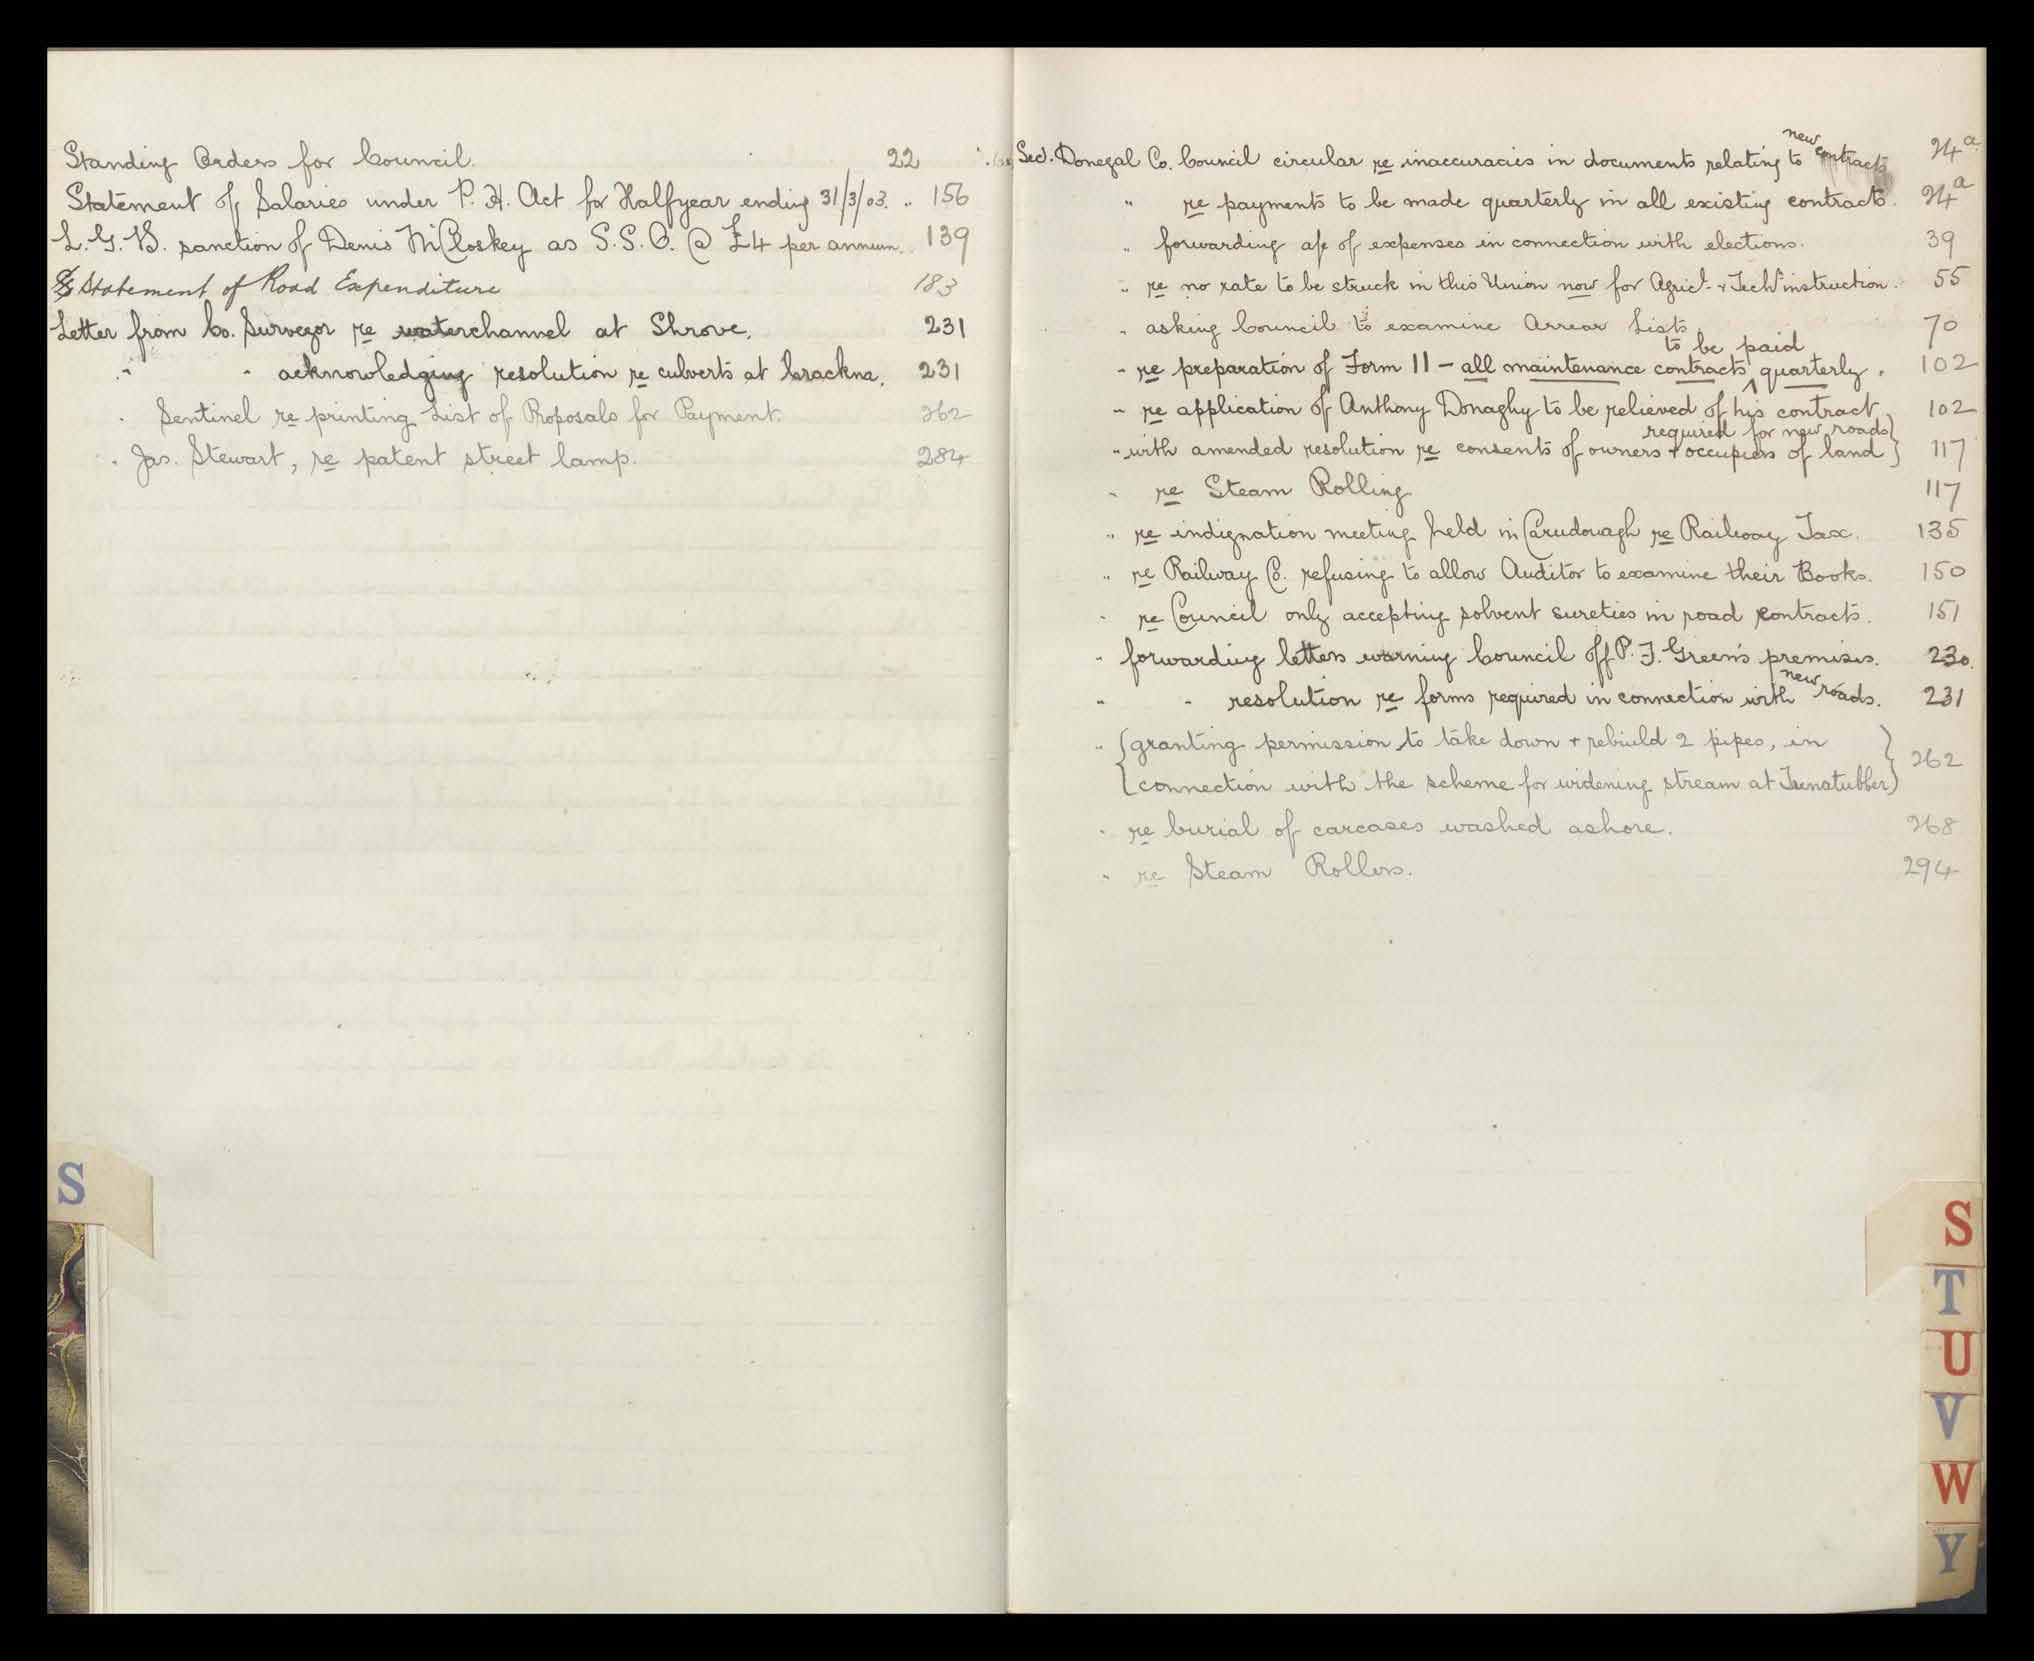 Standing Orders for Council. 22
Statement of Salaries under P. H. Act for Halfyear ending 31/3/03. " 156
L. G. B. sanction of Denis McCloskey as S. S. O. @ £4 per annum. " 139
Statement of Road Expenditure 183
Letter from Co. Surveyor re waterchannel at Shrove. 231
" " acknowledging resolution re culverts at Crackna. 231
" Sentinel re printing List of Proposals for Payment. 262
" Jas. Stewart, re patent street lamp. 284
S
Sec. Donegal Co. Council circular re inaccuracies in documents relating to new contracts 24a
" re payments to be made quarterly in all existing contracts. 24a
" forwarding a/c of expenses in connection with elections. 39
" re no rate to be struck in this Union now for Agricl. & Techl instruction. 55
" asking Council to examine Arrear Lists. 70
" re preparation of Form 11 - all maintenance contracts to be paid quarterly. 102
" re application of Anthony Donaghy to be relieved of his contract 102
" with amended resolution re consents of owners & occupiers of land required for new roads} 117
" re Steam Rolling 117
" re indignation meeting held in Carndonagh re Railway Tax. 135
" re Railway Co. refusing to allow Auditor to examine their Books. 150
" re Council only accepting solvent sureties in road contracts. 151
" forwarding letters warning Council off P. J. Green's premises. 230.
" " resolution re forms required in connection with new roads. 231
" {granting permission to take down & rebuild 2 pipes, in
connection with the scheme for widening stream at } 262
" re burial of carcases washed ashore. 268
" re Steam Rollers. 294
S
T
U
V
W
Y